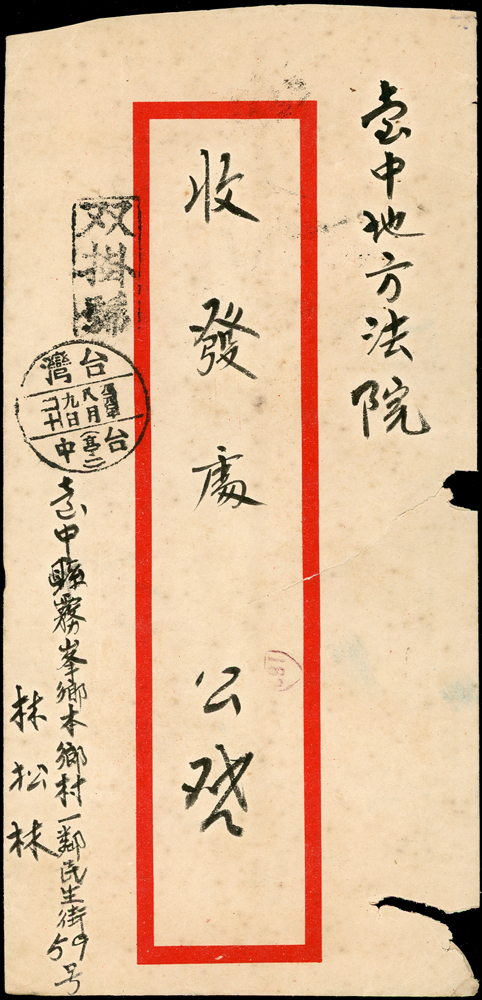 臺中地方法院
收發處公啓
双掛號
台灣
八月
二十九日
台中
臺中縣霧峯鄉本鄉村一鄰民生街59号
林松林